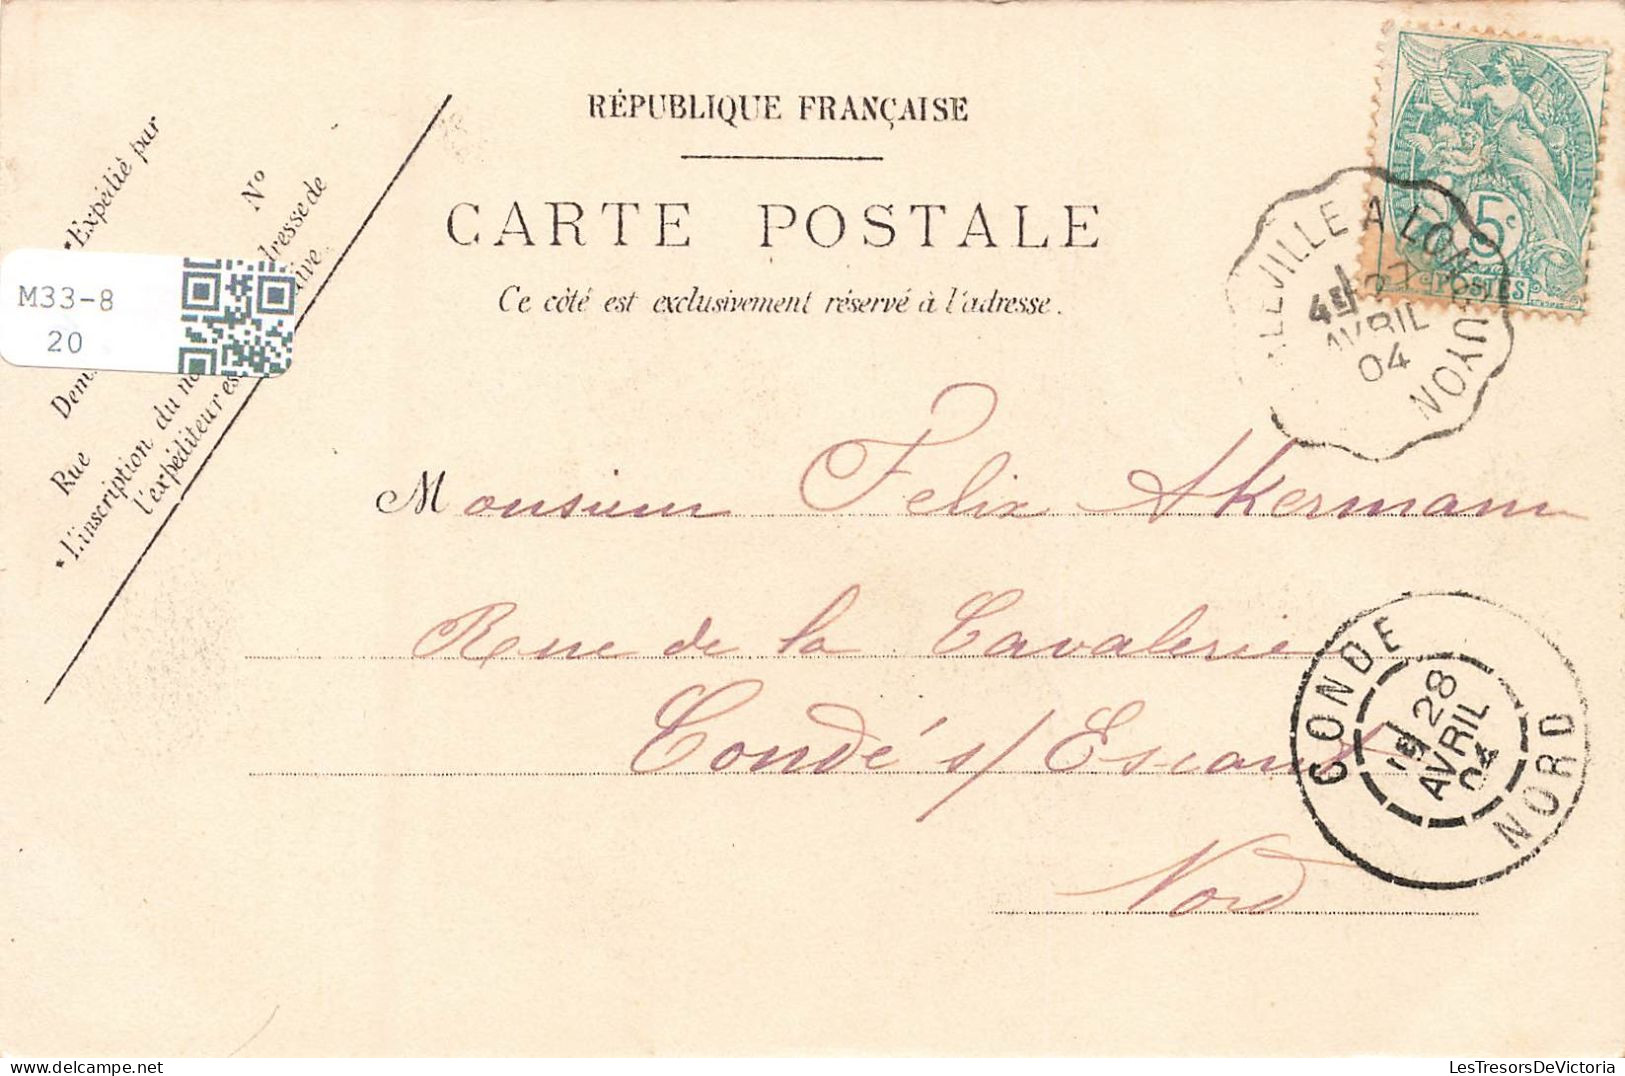 RÉPUBLIQUE FRANÇAISE
CARTE POSTALE
Ce côté est exclusivement réservé à l'adresse.
*Expédié par
N°
Rue
*L'inscription du
l'expéditeur
M33-8
20
FRANÇAISE
5c
POSTES
A LON UYON
4E
AVRIL
04
Monsieur Felix Akermann
Rue de la Cavalerie
Condé s/ Escaut
Nord
CONDE
1E 28
AVRIL
04
NORD
LesTresorsDeVictoria